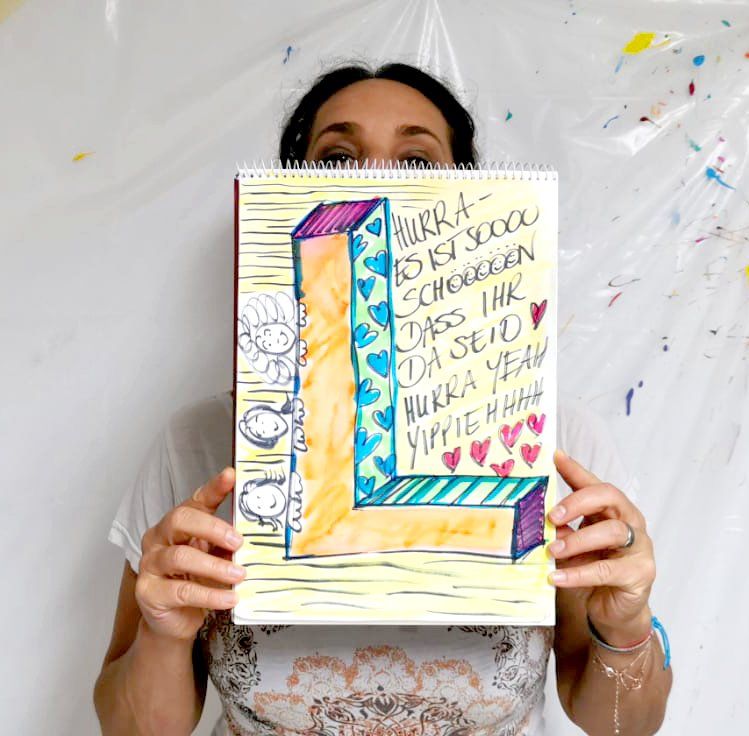 L
HURRA-
ES IST SOOOO
SCHÖÖÖÖÖN
DASS IHR
DA SEID
HURRA YEAH
YIPPIEHHHH